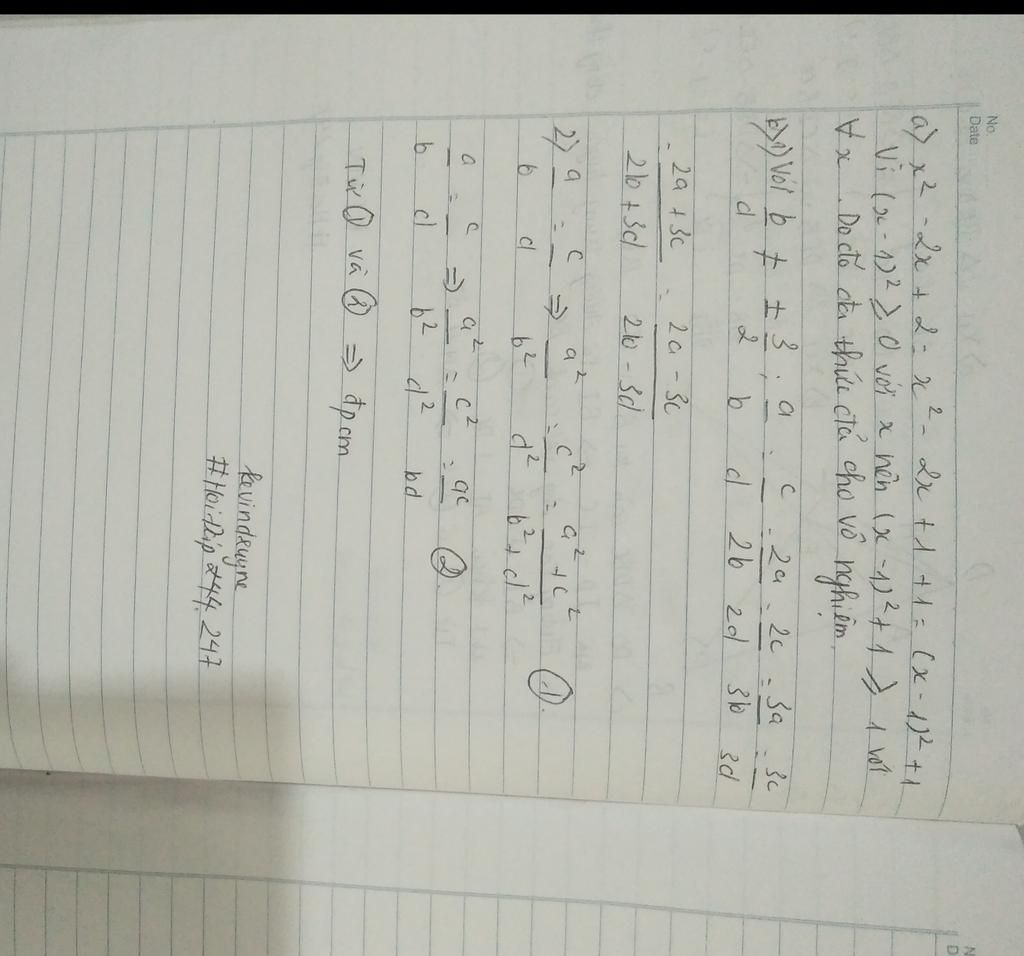 No.
Date
a) x² - 2x + 2 = x² - 2x + 1 + 1 = (x - 1)² + 1
Vì (x - 1)² ≥ 0 với x nên (x - 1)² + 1 ≥ 1 với
∀x. Do đó đa thức đã cho vô nghiệm.
b) 1) Với b/d ≠ ± 3/2 : a/b = c/d = 2a/2b = 2c/2d = 3a/3b = 3c/3d
= 2a + 3c / 2b + 3d = 2a - 3c / 2b - 3d
2) a/b = c/d ⇒ a²/b² = c²/d² = a² + c² / b² + d² ①.
a/b = c/d ⇒ a²/b² = c²/d² = ac/bd ②
Từ ① và ② ⇒ đpcm
#Hoidap247.247